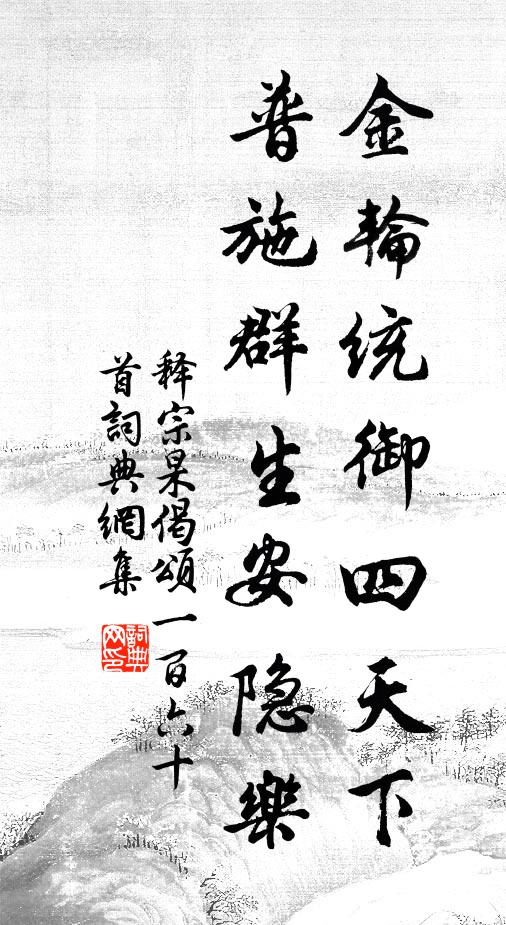 金輪統御四天下
普施群生安隐樂
释宗杲偈頌一百六十
首詞典網集
詞典
网印